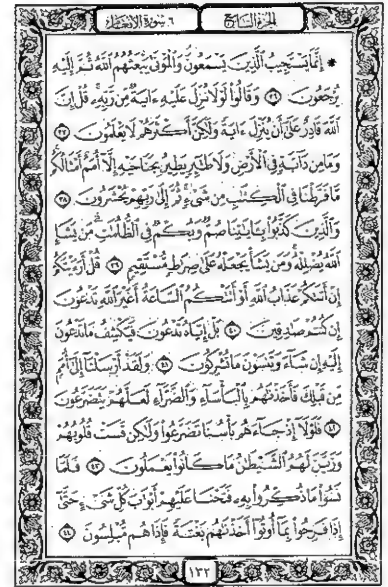 الجزء السابع
٦ سورة الأنعام
* إِنَّمَا يَسْتَجِيبُ ٱلَّذِينَ يَسْمَعُونَ وَٱلْمَوْتَىٰ يَبْعَثُهُمُ ٱللَّهُ ثُمَّ إِلَيْهِ
يُرْجَعُونَ ٣٦ وَقَالُوا۟ لَوْلَا نُزِّلَ عَلَيْهِ ءَايَةٌ مِّن رَّبِّهِۦ قُلْ إِنَّ
ٱللَّهَ قَادِرٌ عَلَىٰٓ أَن يُنَزِّلَ ءَايَةً وَلَٰكِنَّ أَكْثَرَهُمْ لَا يَعْلَمُونَ ٣٧
وَمَا مِن دَآبَّةٍ فِى ٱلْأَرْضِ وَلَا طَٰٓئِرٍ يَطِيرُ بِجَنَاحَيْهِ إِلَّآ أُمَمٌ أَمْثَالُكُم
مَّا فَرَّطْنَا فِى ٱلْكِتَٰبِ مِن شَىْءٍ ثُمَّ إِلَىٰ رَبِّهِمْ يُحْشَرُونَ ٣٨
وَٱلَّذِينَ كَذَّبُوا۟ بِـَٔايَٰتِنَا صُمٌّ وَبُكْمٌ فِى ٱلظُّلُمَٰتِ مَن يَشَإِ
ٱللَّهُ يُضْلِلْهُ وَمَن يَشَأْ يَجْعَلْهُ عَلَىٰ صِرَٰطٍ مُّسْتَقِيمٍ ٣٩ قُلْ أَرَءَيْتَكُمْ
إِنْ أَتَىٰكُمْ عَذَابُ ٱللَّهِ أَوْ أَتَتْكُمُ ٱلسَّاعَةُ أَغَيْرَ ٱللَّهِ تَدْعُونَ
إِن كُنتُمْ صَٰدِقِينَ ٤٠ بَلْ إِيَّاهُ تَدْعُونَ فَيَكْشِفُ مَا تَدْعُونَ
إِلَيْهِ إِن شَآءَ وَتَنسَوْنَ مَا تُشْرِكُونَ ٤١ وَلَقَدْ أَرْسَلْنَآ إِلَىٰٓ أُمَمٍ
مِّن قَبْلِكَ فَأَخَذْنَٰهُم بِٱلْبَأْسَآءِ وَٱلضَّرَّآءِ لَعَلَّهُمْ يَتَضَرَّعُونَ
٤٢ فَلَوْلَآ إِذْ جَآءَهُم بَأْسُنَا تَضَرَّعُوا۟ وَلَٰكِن قَسَتْ قُلُوبُهُمْ
وَزَيَّنَ لَهُمُ ٱلشَّيْطَٰنُ مَا كَانُوا۟ يَعْمَلُونَ ٤٣ فَلَمَّا
نَسُوا۟ مَا ذُكِّرُوا۟ بِهِۦ فَتَحْنَا عَلَيْهِمْ أَبْوَٰبَ كُلِّ شَىْءٍ حَتَّىٰٓ
إِذَا فَرِحُوا۟ بِمَآ أُوتُوٓا۟ أَخَذْنَٰهُم بَغْتَةً فَإِذَا هُم مُّبْلِسُونَ ٤٤
١٣٢